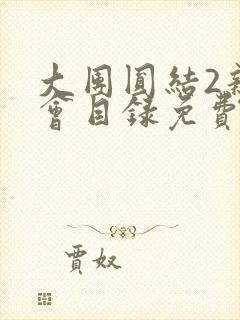 大团圆结2新
会目录免费
贾奴